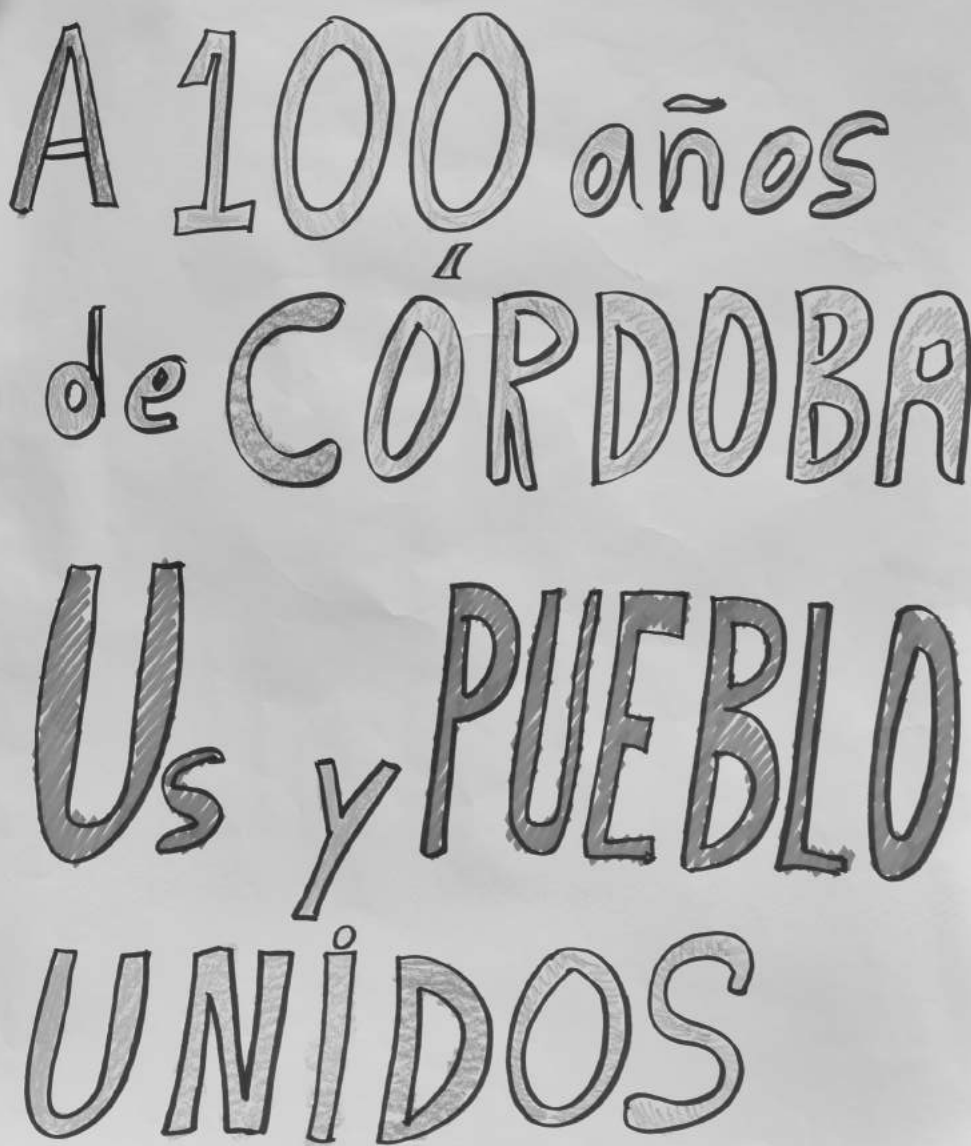 A 100 años
de CÓRDOBA
Us y PUEBLO
UNiDOS